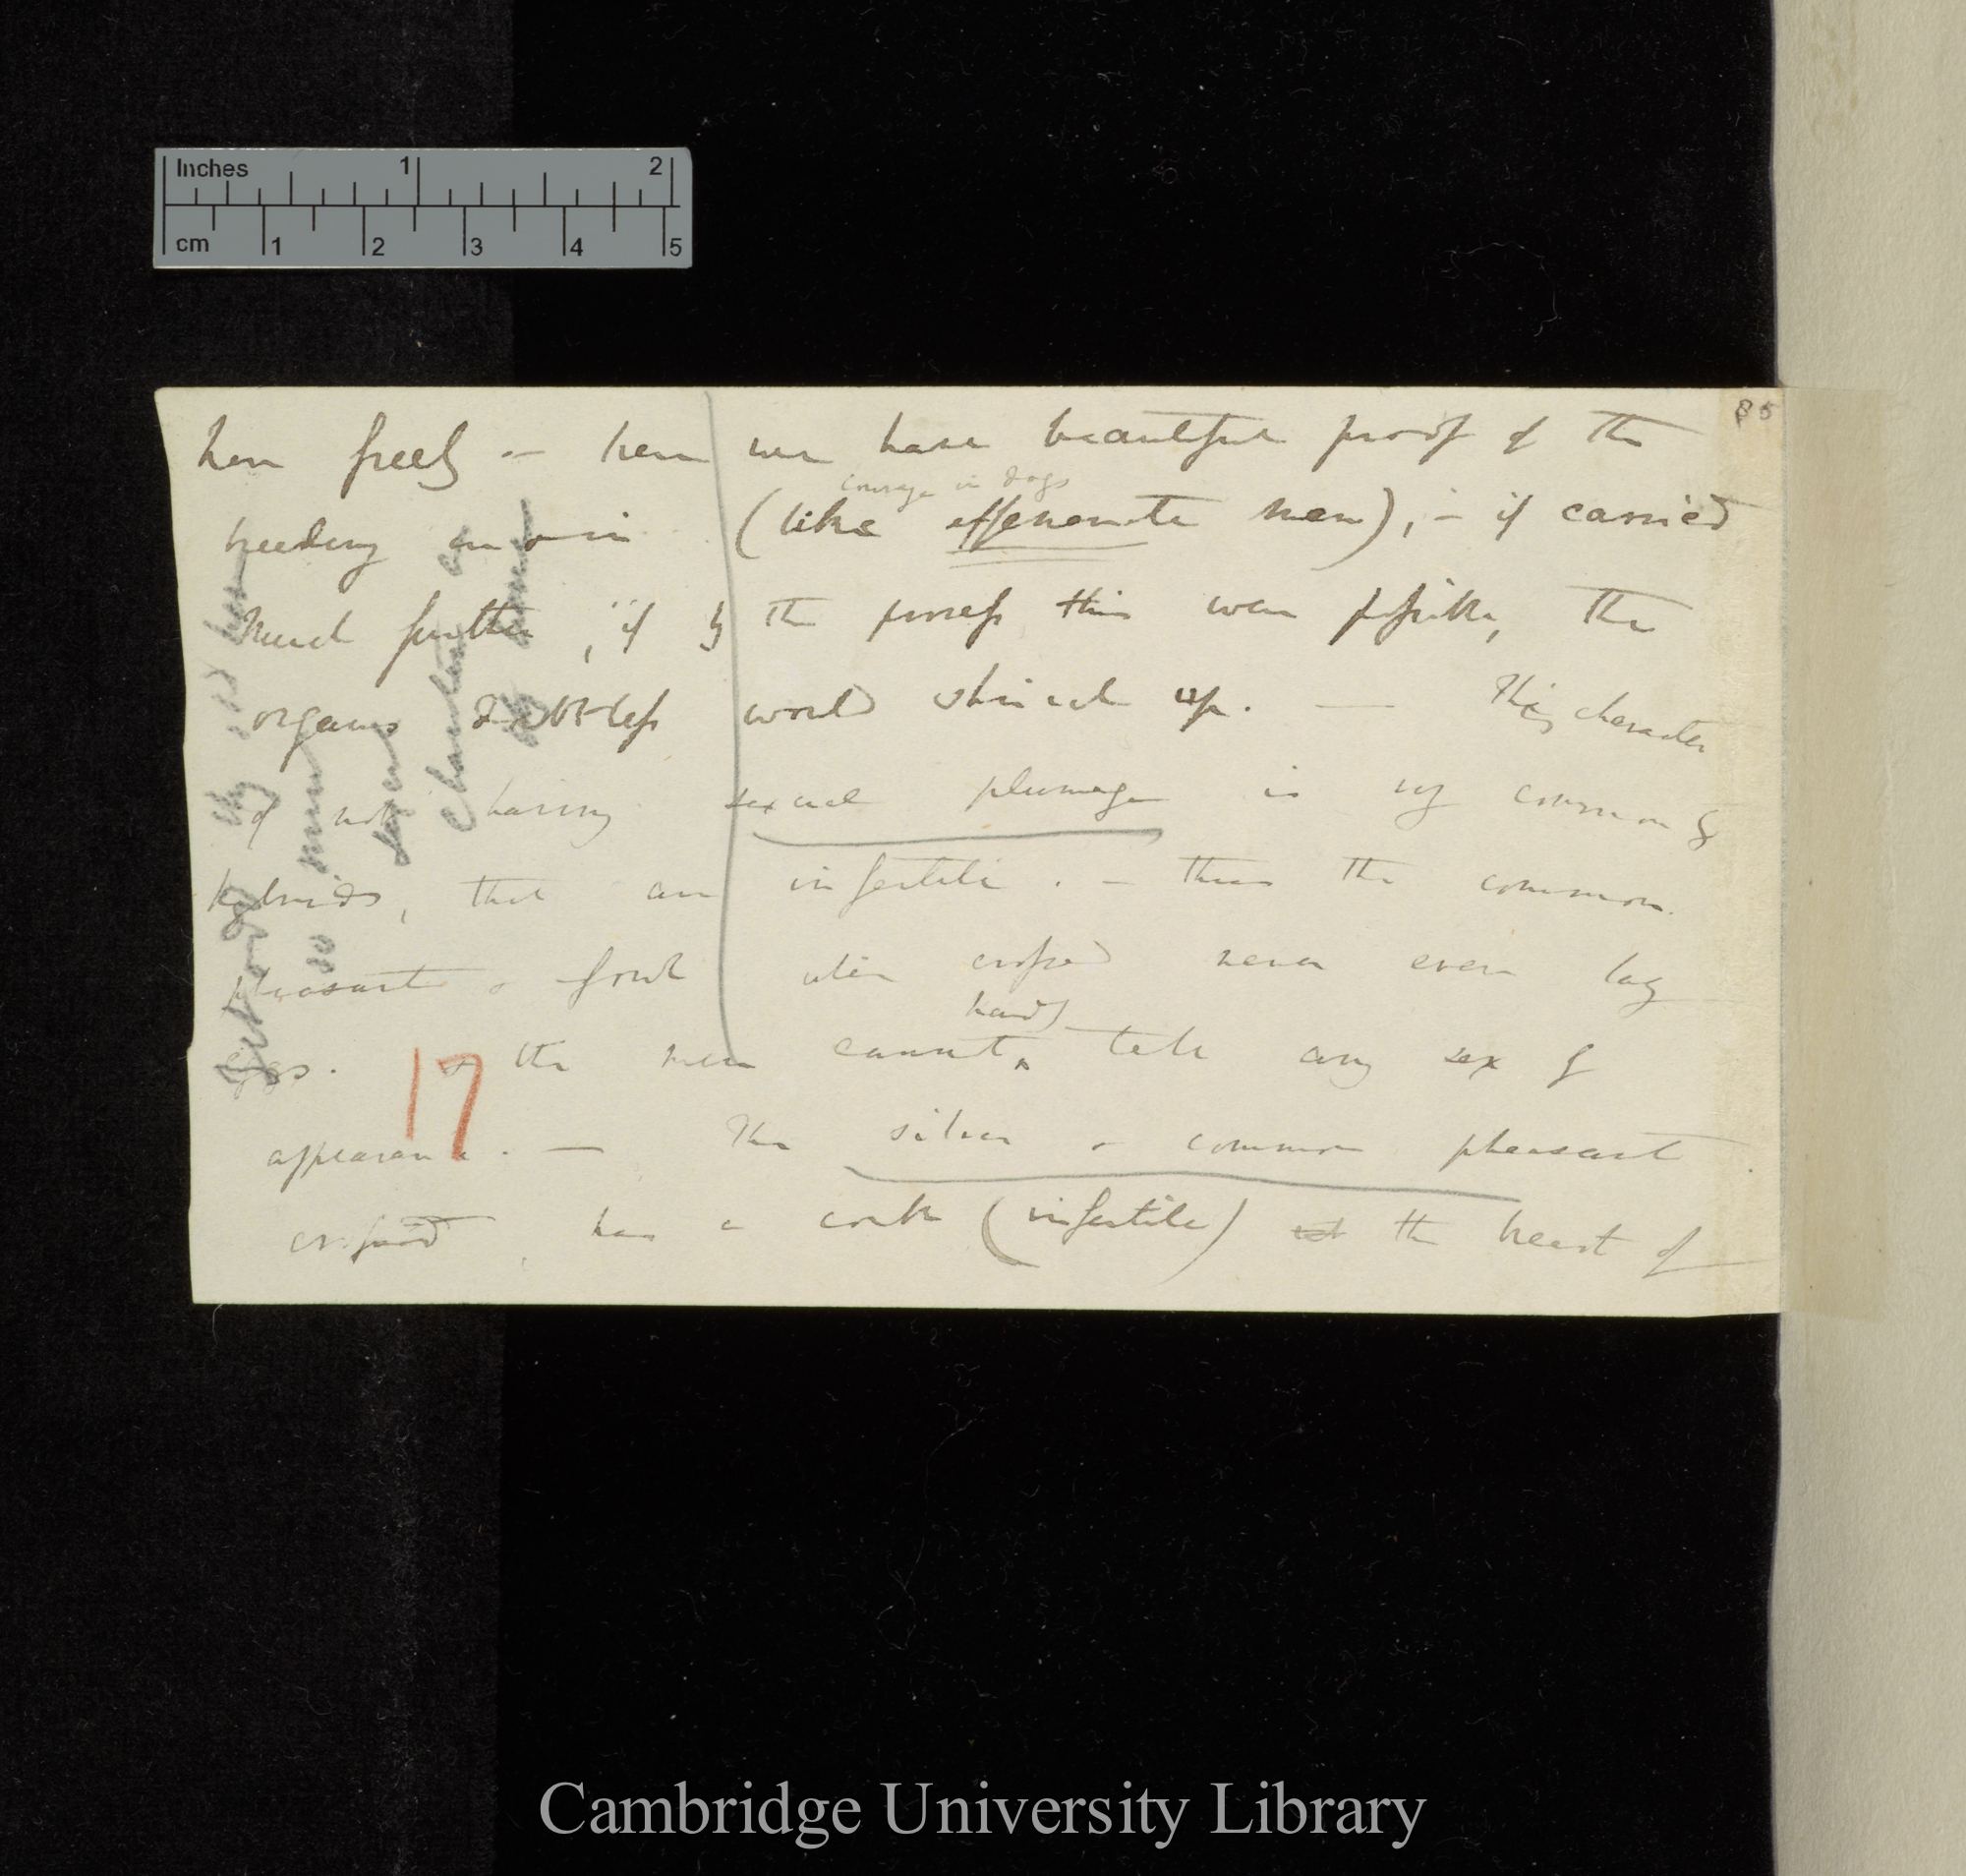 Inches 1 2
cm 1 2 3 4 5
85
hen freely — here we have beautiful proof of the
courage in dogs
breeding in & in (like effeminate men); — if carried
much further, if by the process this were possible, the
organs doubtless would shrink up. — This character
of not having sexual plumage is very common by
hybrids, that are infertile. — thus the common
pheasant & fowl when crossed never even lay
hardly
eggs. & the men cannot tell any sex by
appearance. — The silver & common pheasant
crossed, has a cock (infertile) the heart of
17
character
so
Cambridge University Library